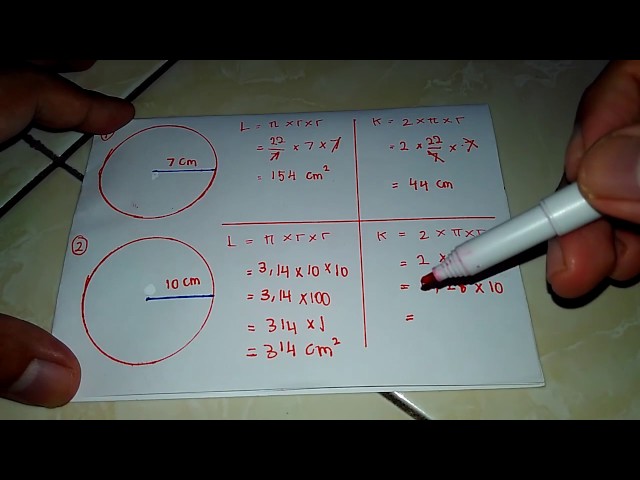 7 cm
L = π × r × r
= 22/7 × 7 × 7
= 154 cm²
K = 2 × π × r
= 2 × 22/7 × 7
= 44 cm
2
10 cm
L = π × r × r
= 3,14 × 10 × 10
= 3,14 × 100
= 314 × 1
= 314 cm²
K = 2 × π × r
= 2 ×
× 10
=